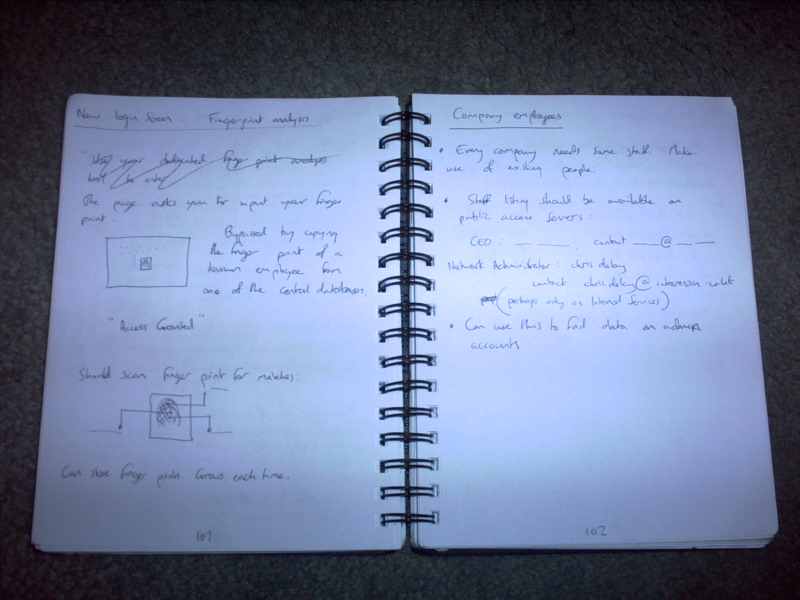 New login screen : Fingerprint analysis
"Use your dedicated finger print analysis
tool to enter"
The page asks you to input your finger
print.
Bypassed by copying
the finger print of a
known employee from
one of the central databases.
"Access Granted"
Should scan finger print for matches:
Can store finger prints across each time.
101
Company employees
• Every company needs some staff. Make
use of existing people.
• Staff listing should be available on
public access servers:
CEO : __ ____ contact ___@__ __
Network Administrator : chris delay
contact chris delay@introversion.co.uk
(perhaps only on Internal Services)
• Can use this to find data on admin
accounts
102